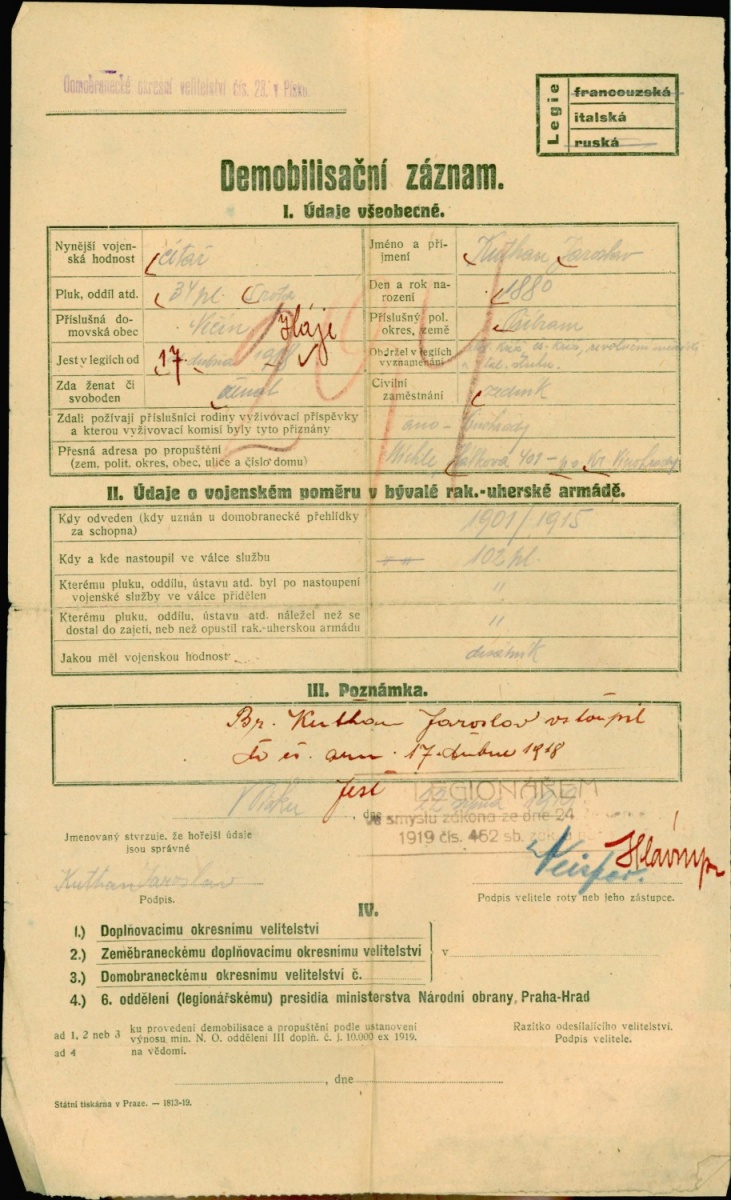 Domobranecké okresní velitelství čís. 28. v Písku.
Legie
francouzská
italská
ruská
Demobilisační záznam.
I. Údaje všeobecné.
Nynější vojenská hodnost
četař
Jméno a příjmení
Kuthan Jaroslav
Pluk, oddíl atd.
34 pl.
Den a rok narození
1880
Příslušná domovská obec
Nečín Háje
Příslušný pol. okres, země
Příbram
Jest v legiích od
17. dubna 1918
Obdržel v legiích vyznamenání
Zda ženat či svoboden
ženat
Civilní zaměstnání
zedník
Zdali požívají příslušníci rodiny vyživovací příspěvky
a kterou vyživovací komisí byly tyto přiznány
ano - Vinohrady
Přesná adresa po propuštění
(zem. polit. okres, obec, ulice a číslo domu)
Michle 401 Kr. Vinohrady
II. Údaje o vojenském poměru v bývalé rak.-uherské armádě.
Kdy odveden (kdy uznán u domobranecké přehlídky
za schopna)
1901/1915
Kdy a kde nastoupil ve válce službu
102 pl.
Kterému pluku, oddílu, ústavu atd. byl po nastoupení
vojenské služby ve válce přidělen
"
Kterému pluku, oddílu, ústavu atd. náležel než se
dostal do zajetí, neb než opustil rak.-uherskou armádu
"
Jakou měl vojenskou hodnost
desátník
III. Poznámka.
Br. Kuthan Jaroslav vstoupil
do čs. arm. 17. dubna 1918
jest LEGIONÁŘEM
V Písku, dne 1919
ve smyslu zákona ze dne 24
1919 čís. 462 sb.
Jmenovaný stvrzuje, že hořejší údaje
jsou správné
Kuthan Jaroslav
Podpis.
Podpis velitele roty neb jeho zástupce.
IV.
1.) Doplňovacímu okresnímu velitelství
2.) Zeměbraneckému doplňovacímu okresnímu velitelství
v
3.) Domobraneckému okresnímu velitelství č.
4.) 6. oddělení (legionářskému) presidia ministerstva Národní obrany, Praha-Hrad
ad 1, 2 neb 3 ku provedení demobilisace a propuštění podle ustanovení
výnosu min. N. O. oddělení III doplň. č. j. 10.000 ex 1919.
ad 4 na vědomí.
Razítko odesílajícího velitelství.
Podpis velitele.
, dne
Státní tiskárna v Praze. — 1813-19.